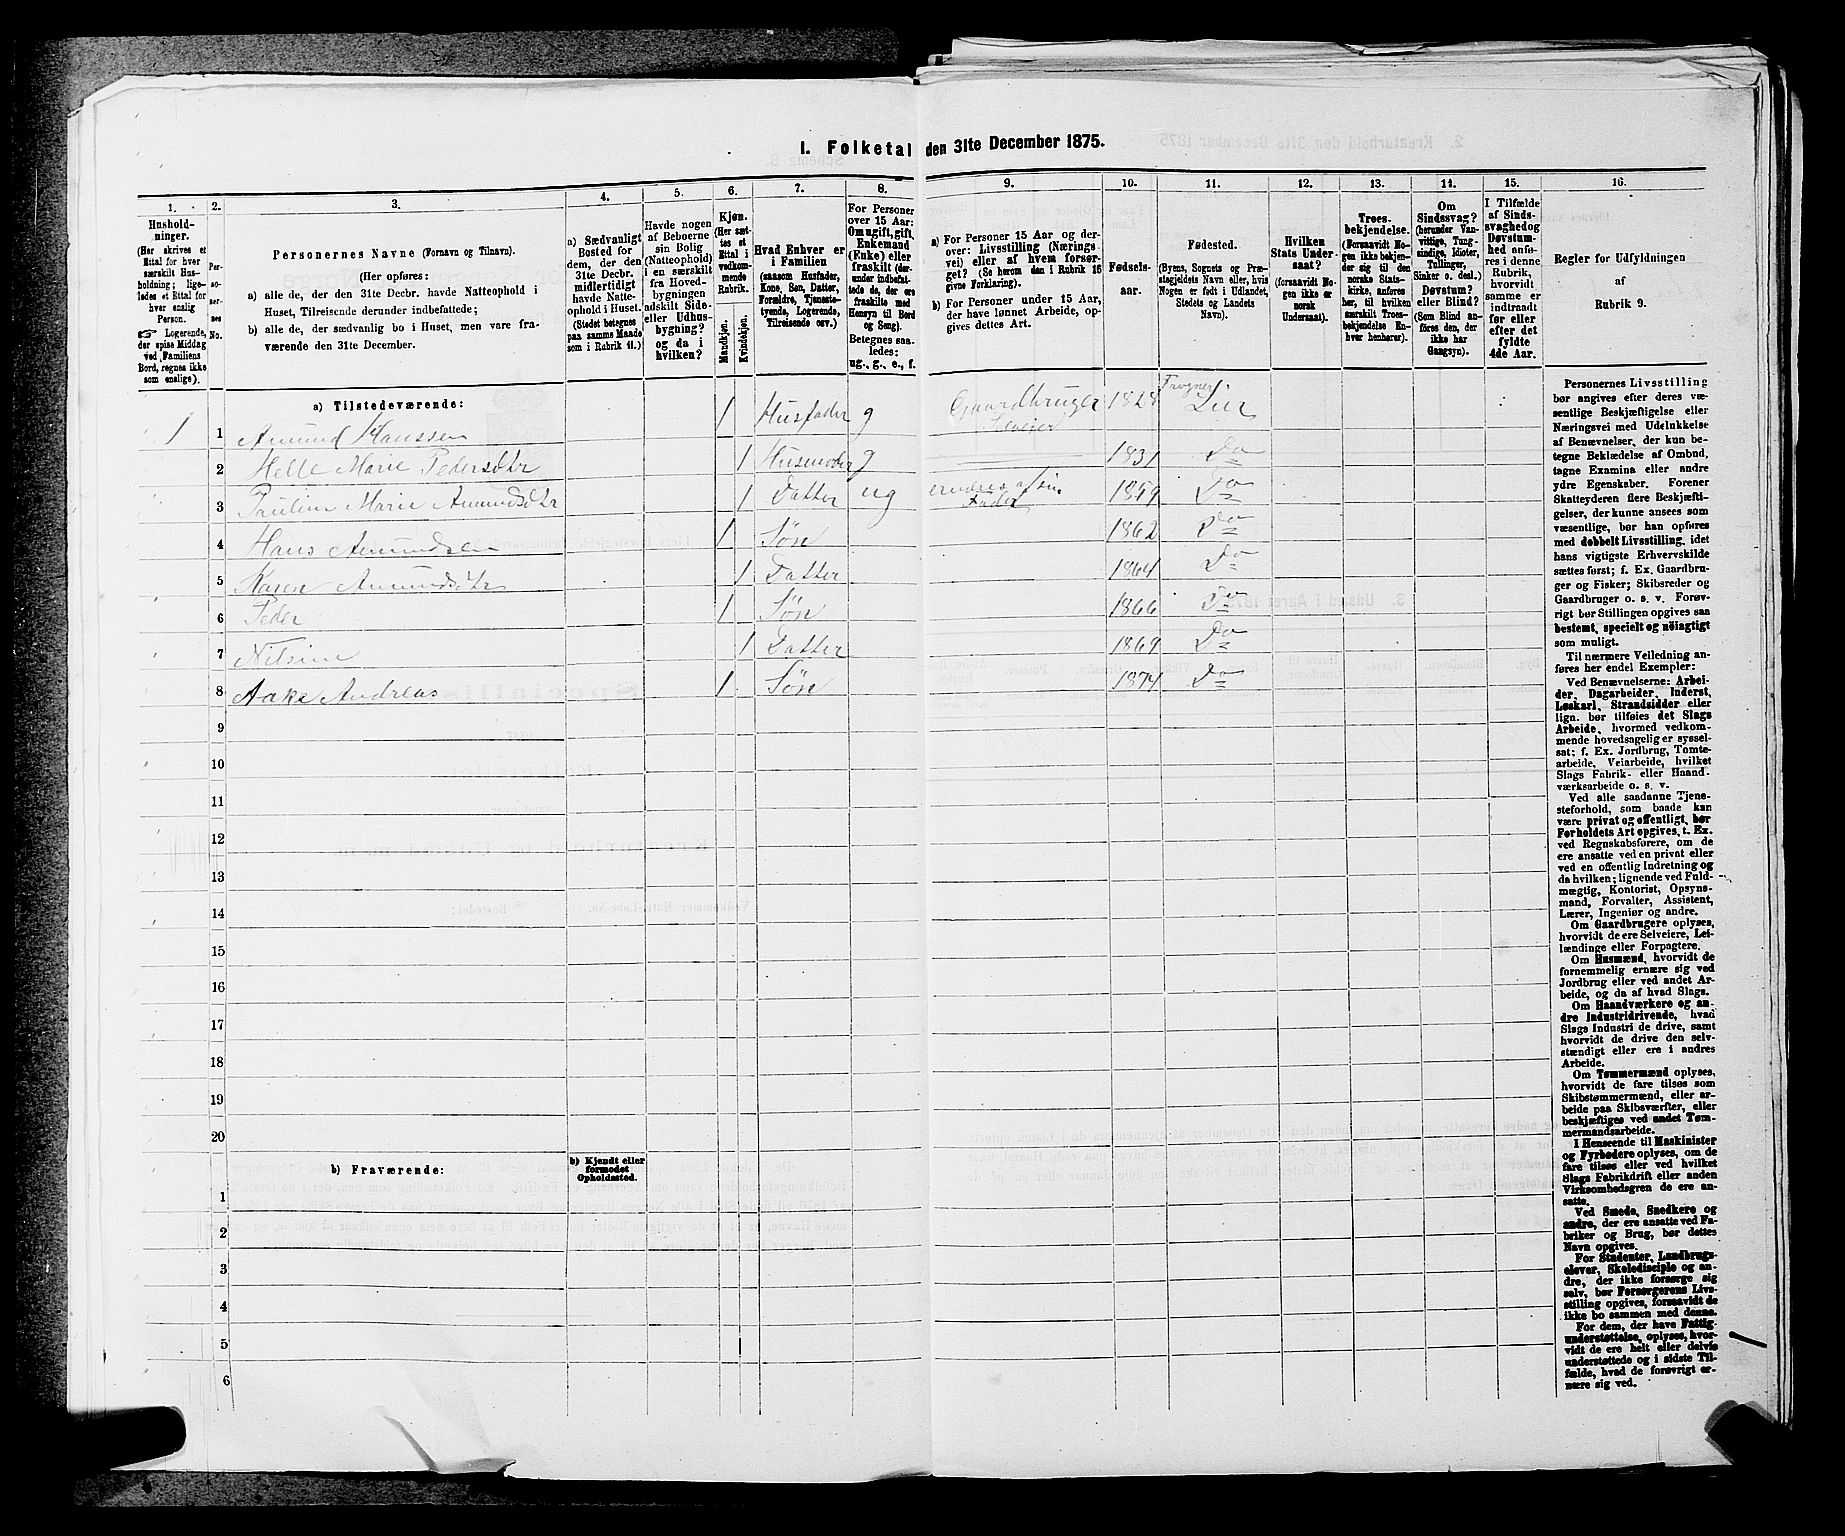 I. Folketal den 31te December 1875.
1.
2.
3.
4.
5.
6.
7.
8.
9.
10.
11.
12.
13.
14.
15.
16.
Hushold-
ninger.
(Her skrives et
Ettal for hver
særskilt Hus-
holdning; lige-
ledes et Ettal for
hver enslig
Person.
☞ Logerende,
der spise Middag
ved Familiens
Bord, regnes ikke
som enslige).
Per-
so-
ner-
nes
No.
Personernes Navne (Fornavn og Tilnavn).
(Her opføres:
a) alle de, der den 31te Decbr. havde Natteophold i
Huset, Tilreisende derunder indbefattede;
b) alle de, der sædvanlig bo i Huset, men vare fra-
værende den 31te December.
a) Sædvanligt
Bosted for
dem, der den
31te Decbr.
midlertidigt
havde Natte-
ophold i Huset.
(Stedet betegnes
paa samme Maade
som i Rubrik 11.)
Havde nogen
af Beboerne
sin Bolig
(Natteophold)
i en særskilt
fra Hoved-
bygningen
adskilt Side-
eller Udhus-
bygning?
og da i
hvilken?
Kjøn.
(Her sæt-
tes et
Ettal i
vedkom-
mende
Rubrik.
Mandkjøn.
Kvindekjøn.
Hvad Enhver er
i Familien
(saasom Husfader,
Kone, Søn, Datter,
Forældre, Tjeneste-
tyende, Logerende,
Tilreisende osv.)
For Personer
over 15 Aar:
Om ugift, gift,
Enkemand
(Enke) eller
fraskilt (der-
under indbefat-
tede de, der ere
fraskilte med
Hensyn til Bord
og Seng).
Betegnes saa-
ledes:
ug., g., e., f.
a) For Personer 15 Aar og der-
over: Livsstilling (Nærings-
vei) eller af hvem forsør-
get? (Se herom den i Rubrik 16
givne Forklaring).
b) For Personer under 15 Aar,
der have lønnet Arbeide, op-
gives dettes Art.
Fødsels-
aar.
Fødested.
(Byens, Sognets og Præ-
stegjeldets Navn eller, hvis
Nogen er født i Udlandet,
Stedets og Landets
Navn).
Hvilken
Stats Under-
saat?
(foraavidt No-
gen ikke er
norsk
Undersaat).
Troes-
bekjendelse.
(Forsaavidt No-
gen ikke bekjen-
der sig til den
norske Stats-
kirke, anføres
her, til hvilken
særskilt Troes-
bekjendelse En-
hver henhører).
Om
Sindssvag?
(herunder Van-
vittige, Tung-
sindige, Idioter,
Tullinger,
Sinker o. desl.)
Døvstum?
eller Blind?
(Som Blind an-
føres den, der
ikke har
Gangsyn).
I Tilfælde
af Sinds-
svaghed og
Døvstum-
hed anfø-
res i denne
Rubrik,
hvorvidt
samme er
indtraadt
før eller
efter det
fyldte
4de Aar.
Regler for Udfyldningen
af
Rubrik 9.
a) Tilstedeværende:
1 1 Amund Hanssen 1 Husfader g Gaardbruger Selveier 1828 Frogner Lier
2 Helle Marie Pedersdtr 1 Husmoder g 1831 Do
3 Pauline Marie Amundsdtr 1 Datter ug ernæres af sin Fader 1859 Do
4 Hans Amundsen 1 Søn 1862 Do
5 Karen Amundsdtr 1 Datter 1864 Do
6 Peder 1 Søn 1866 Do
7 Nilsine 1 Datter 1869 Do
8 Aake Andreas 1 Søn 1874 Do
9
10
11
12
13
14
15
16
17
18
19
20
b) Fraværende:
b) Kjendt eller
formodet
Opholdssted.
1
2
3
4
5
6
Personernes Livsstilling
bør angives efter deres væ-
sentlige Beskjæftigelse eller
Næringsvei med Udelukkelse
af Benævnelser, der kun be-
tegne Beklædelse af Ombud,
tagne Examina eller andre
ydre Egenskaber. Forener
Skatteyderen flere Beskjæfti-
gelser, der kunne ansees som
væsentlige, bør han opføres
med dobbelt Livsstilling, idet
hans vigtigste Erhvervskilde
sættes først; f. Ex. Gaardbru-
ger og Fisker; Skibsreder og
Gaardbruger o. s. v. Forøv-
rigt bør Stillingen opgives saa
bestemt, specielt og nöiagtigt
som muligt.
Til nærmere Veiledning an-
føres her endel Exempler:
Ved Benævnelserne: Arbei-
der, Dagarbeider, Inderst,
Løskarl, Strandsidder eller
lign. bør tilføies det Slags
Arbeide, hvormed vedkom-
mende hovedsagelig er syssel-
sat; f. Ex. Jordbrug, Tomte-
arbeide, Veiarbeide, hvilket
Slags Fabrik- eller Haand-
værksarbeide o. s. v.
Ved alle saadanne Tjene-
steforhold, som baade kan
være privat og offentligt, bør
Forholdets Art opgives, t. Ex.
ved Regnskabsførere, om de
ere ansatte ved en privat eller
ved en offentlig Indretning og
da hvilken; lignende ved Fuld-
mægtig, Kontorist, Opsyns-
mand, Forvalter, Assistent,
Lærer, Ingeniør og andre.
Om Gaardbrugere oplyses,
hvorvidt de ere Selveiere, Lei-
lændinge eller Forpagtere.
Om Husmænd, hvorvidt de
fornemmelig ernære sig ved
Jordbrug eller ved andet Ar-
beide, og da af hvad Slags.
Om Haandværkere og an-
dre Industridrivende, hvad
Slags Industri de drive, samt
hvorvidt de drive den selv-
stændigt eller ere i andres
Arbeide.
Om Tømmermænd oplyses,
hvorvidt de fare tilsøs som
Skibstømmermænd, eller ar-
beide paa Skibsværfter, eller
beskjæftiges ved andet Tøm-
mermandsarbeide.
I Henseende til Maskinister
og Fyrbødere oplyses, om de
fare tilsøs eller ved hvilket
Slags Fabrikdrift eller anden
Virksomhedsgren de ere an-
satte.
Ved Smede, Snedkere og
andre, der ere ansatte ved Fa-
briker og Brug, bør dettes
Navn opgives.
For Studenter, Landbrugs-
elever, Skoledisciple og an-
dre, der ikke forsørge sig
selv, bør Forsørgerens Livs-
stilling opgives, forsaavidt de
ikke bo sammen med denne.
For dem, der have Fattig-
understøttelse, oplyses, hvor-
vidt de ere helt eller delvis
understøttede og i sidste Til-
fælde, hvad de forøvrigt er-
nære sig ved.